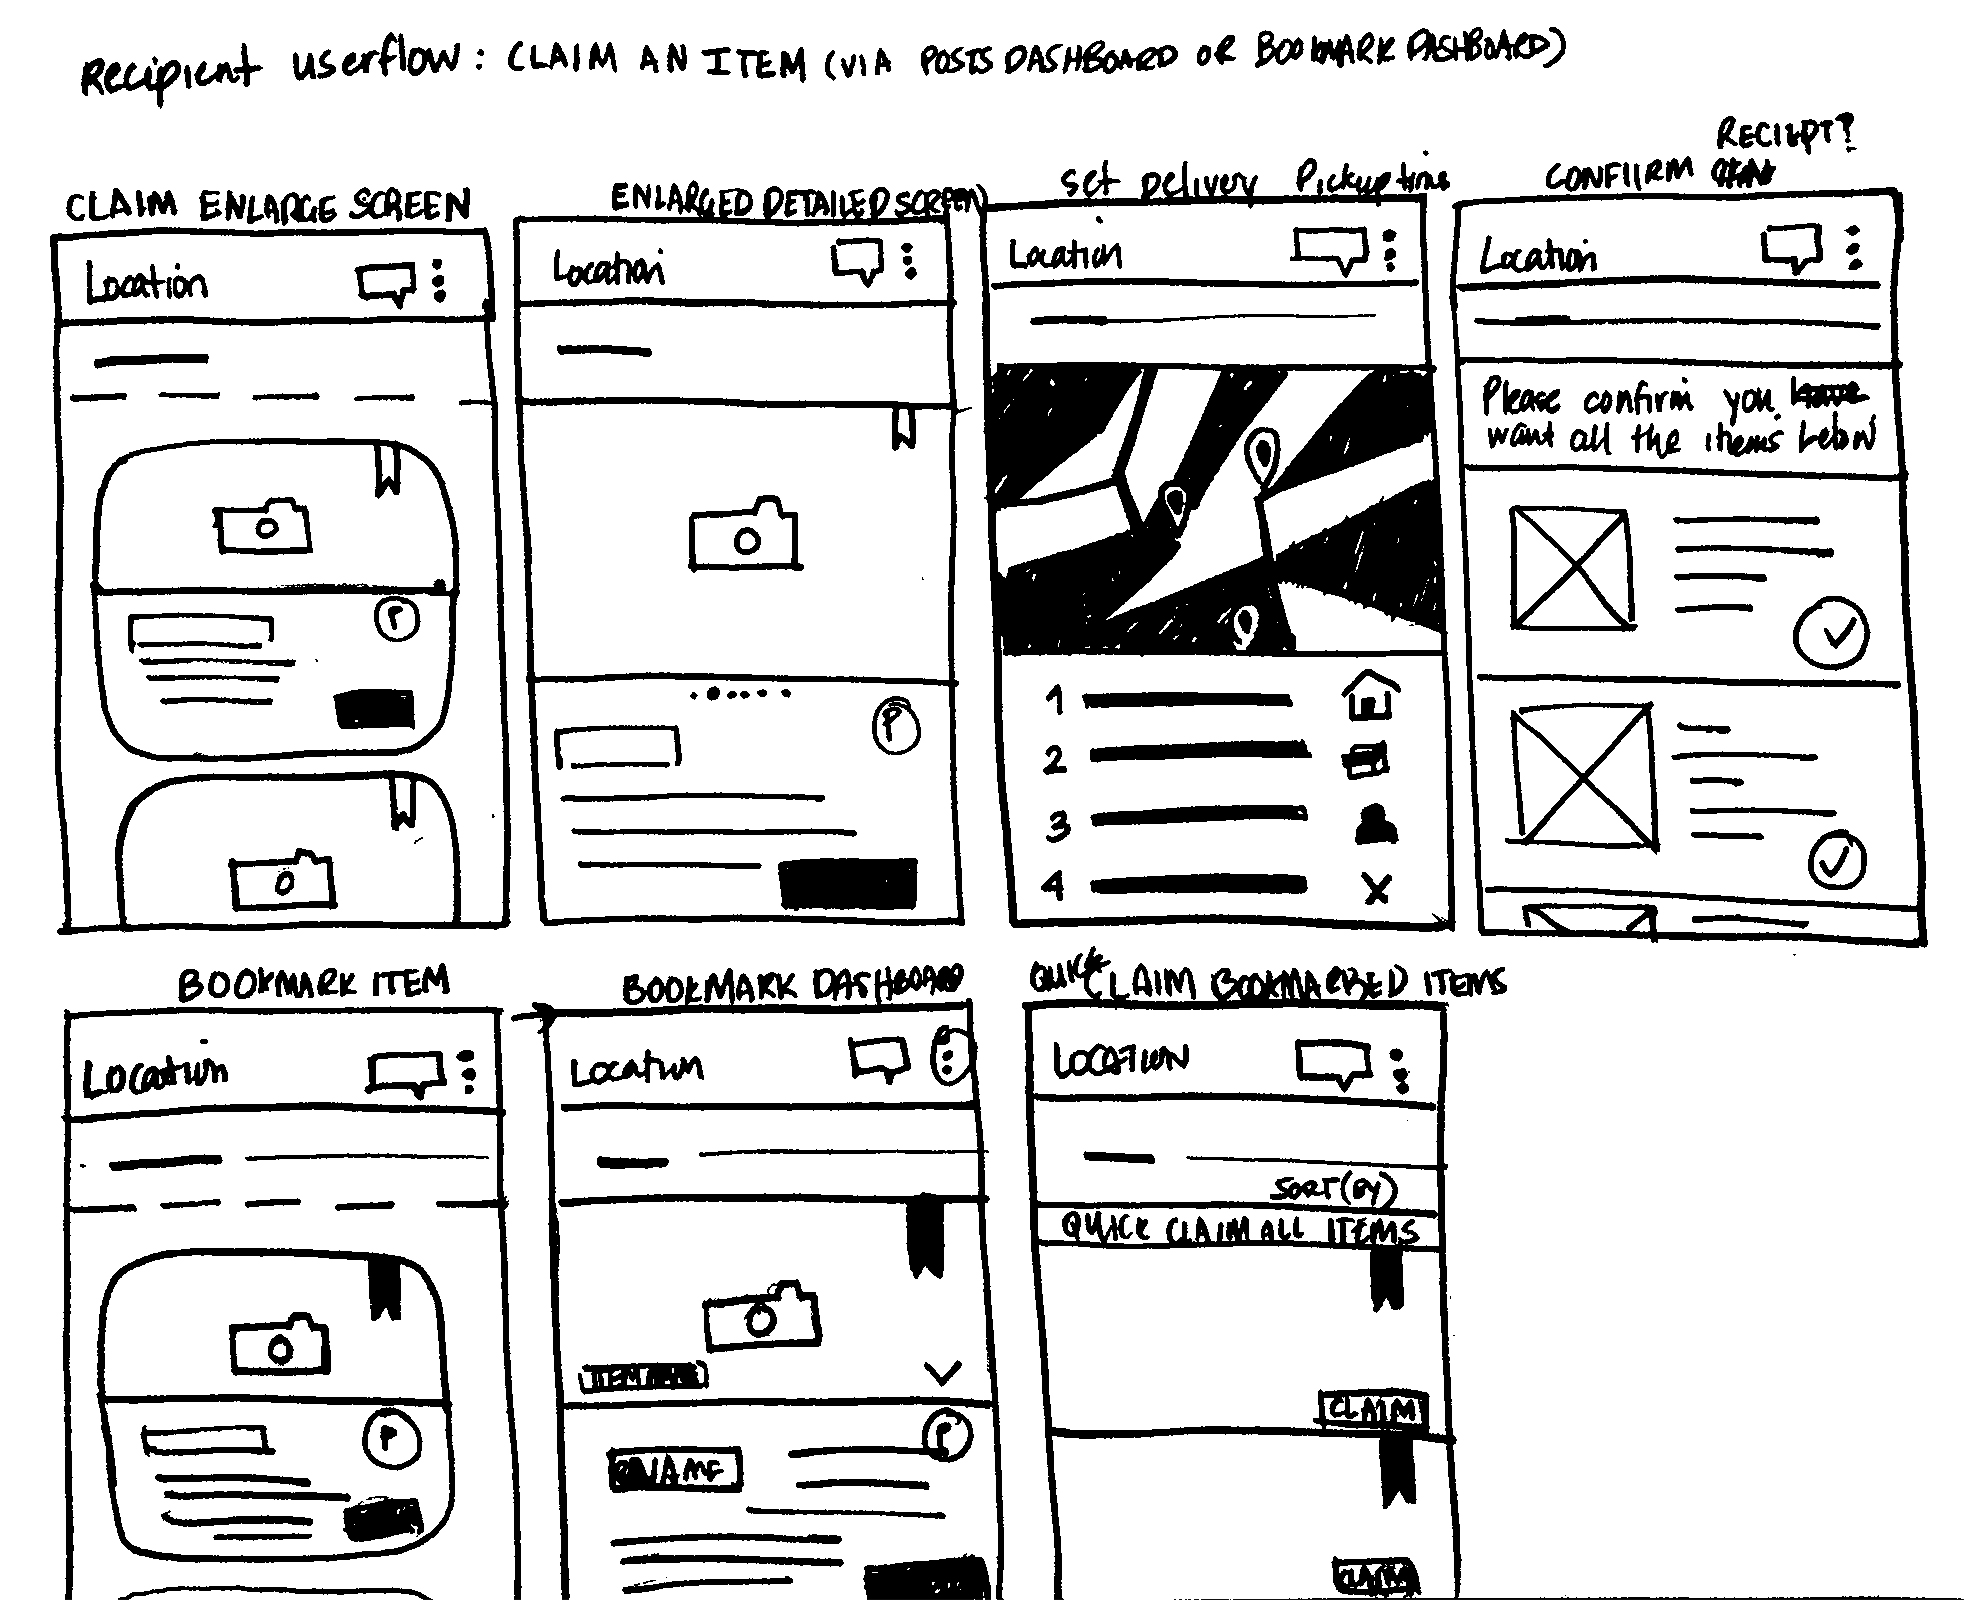 Recipient userflow: CLAIM AN ITEM (VIA POSTS DASHBOARD OR BOOKMARK DASHBOARD)
CLAIM ENLARGE SCREEN
Location
P
ENLARGED DETAILED SCREEN)
Location
P
Set Delivery Pickup time
Location
1
2
3
4
RECIEPT?
CONFIIRM
Location
Please confirm you have
want all the items below
BOOKMARK ITEM
Location
P
BOOKMARK DASHBOARD
Location
ITEM NAME
P
NAME
QUICK CLAIM BOOKMARKED ITEMS
LOCATION
SORT(BY)
QUICK CLAIM ALL ITEMS
CLAIM
CLAIM